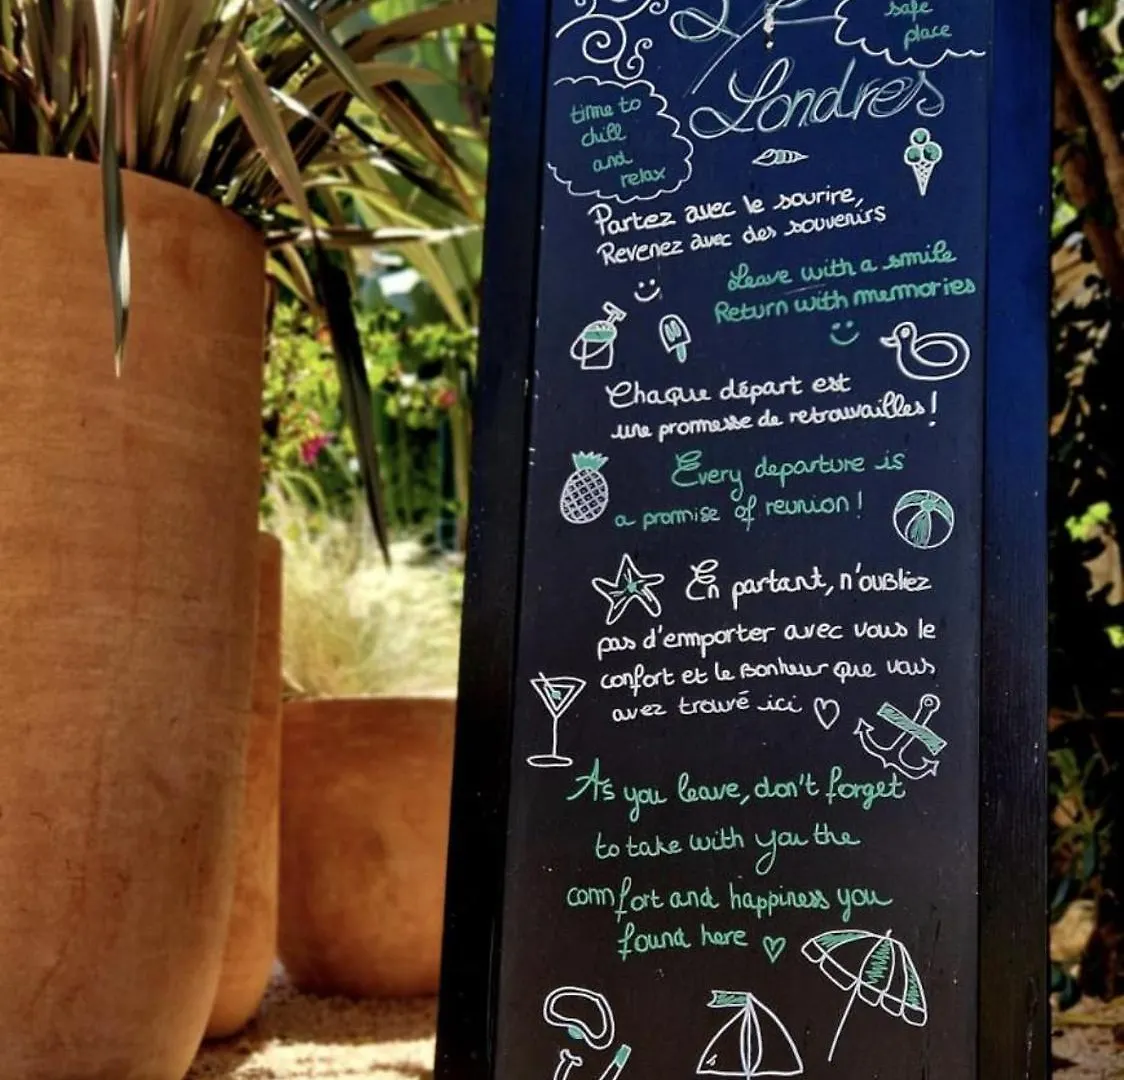 safe
place
Londres
time to
chill
and
relax
Partez avec le sourire,
Revenez avec des souvenirs
Leave with a smile
Return with memories
Chaque départ est
une promesse de retrouvailles!
Every departure is
a promise of reunion!
En partant, n'oubliez
pas d'emporter avec vous le
confort et le Bonheur que vous
avez trouvé ici
As you leave, don't forget
to take with you the
comfort and happiness you
found here